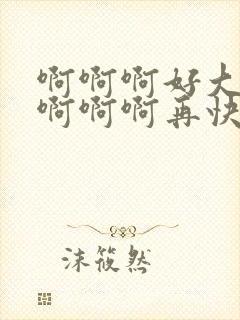 啊啊啊好大
啊啊啊再快
沫筱然